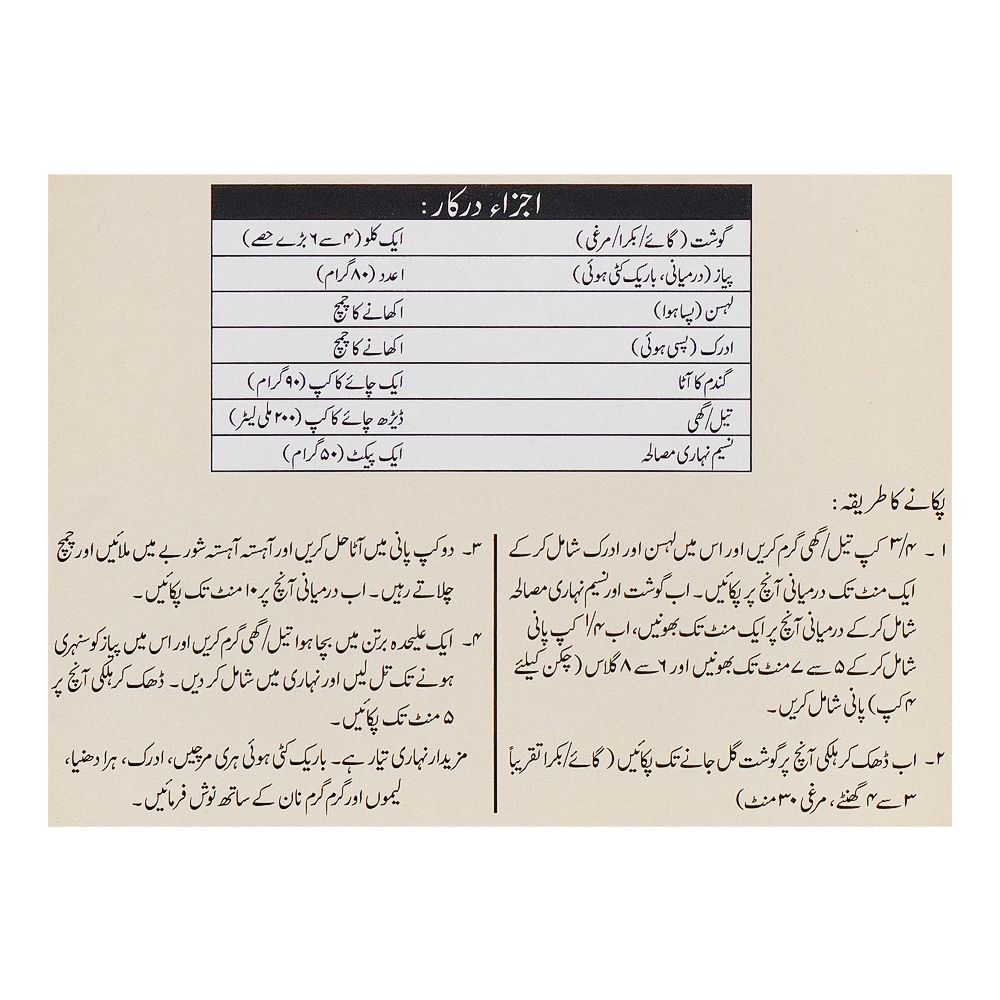 اجزاء درکار:
گوشت (گائے/بکرا/مرغی) ایک کلو (۴ سے ۶ بڑے حصے)
پیاز (درمیانی، باریک کٹی ہوئی) ۱عدد (۸۰گرام)
لہسن (پسا ہوا) ۱کھانے کا چمچ
ادرک (پسی ہوئی) ۱کھانے کا چمچ
گندم کا آٹا ایک چائے کا کپ (۹۰گرام)
تیل/گھی ڈیڑھ چائے کا کپ (۲۰۰ ملی لیٹر)
نسیم نہاری مصالحہ ایک پیکٹ (۵۰گرام)
پکانے کا طریقہ:
۱۔ ۳/۴ کپ تیل/گھی گرم کریں اور اس میں لہسن اور ادرک شامل کر کے
ایک منٹ تک درمیانی آنچ پر پکائیں۔ اب گوشت اور نسیم نہاری مصالحہ
شامل کر کے درمیانی آنچ پر ایک منٹ تک بھونیں، اب ۱/۴ کپ پانی
شامل کر کے ۵ سے ۷ منٹ تک بھونیں اور ۶ سے ۸ گلاس (چکن کیلئے
۴ کپ) پانی شامل کریں۔
۲۔ اب ڈھک کر ہلکی آنچ پر گوشت گل جانے تک پکائیں (گائے/بکرا تقریباً
۳ سے ۴ گھنٹے، مرغی ۳۰ منٹ)
۳۔ دو کپ پانی میں آٹا حل کریں اور آہستہ آہستہ شوربے میں ملائیں اور چمچ
چلاتے رہیں۔ اب درمیانی آنچ پر ۱۰ منٹ تک پکائیں۔
۴۔ ایک علیحدہ برتن میں بچا ہوا تیل/گھی گرم کریں اور اس میں پیاز کو سنہری
ہونے تک تل لیں اور نہاری میں شامل کر دیں۔ ڈھک کر ہلکی آنچ پر
۵ منٹ تک پکائیں۔
مزیدار نہاری تیار ہے۔ باریک کٹی ہوئی ہری مرچیں، ادرک، ہرا دھنیا،
لیموں اور گرم گرم نان کے ساتھ نوش فرمائیں۔